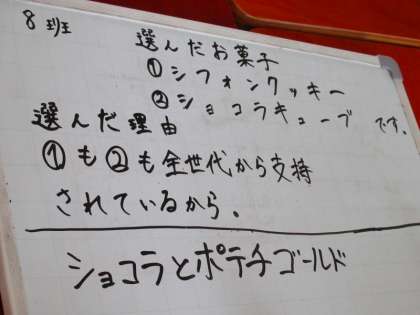 8班
選んだお菓子
①シフォンクッキー
②ショコラキューブ です。
選んだ理由
①も②も全世代から支持
されているから。
ショコラとポテチゴールド